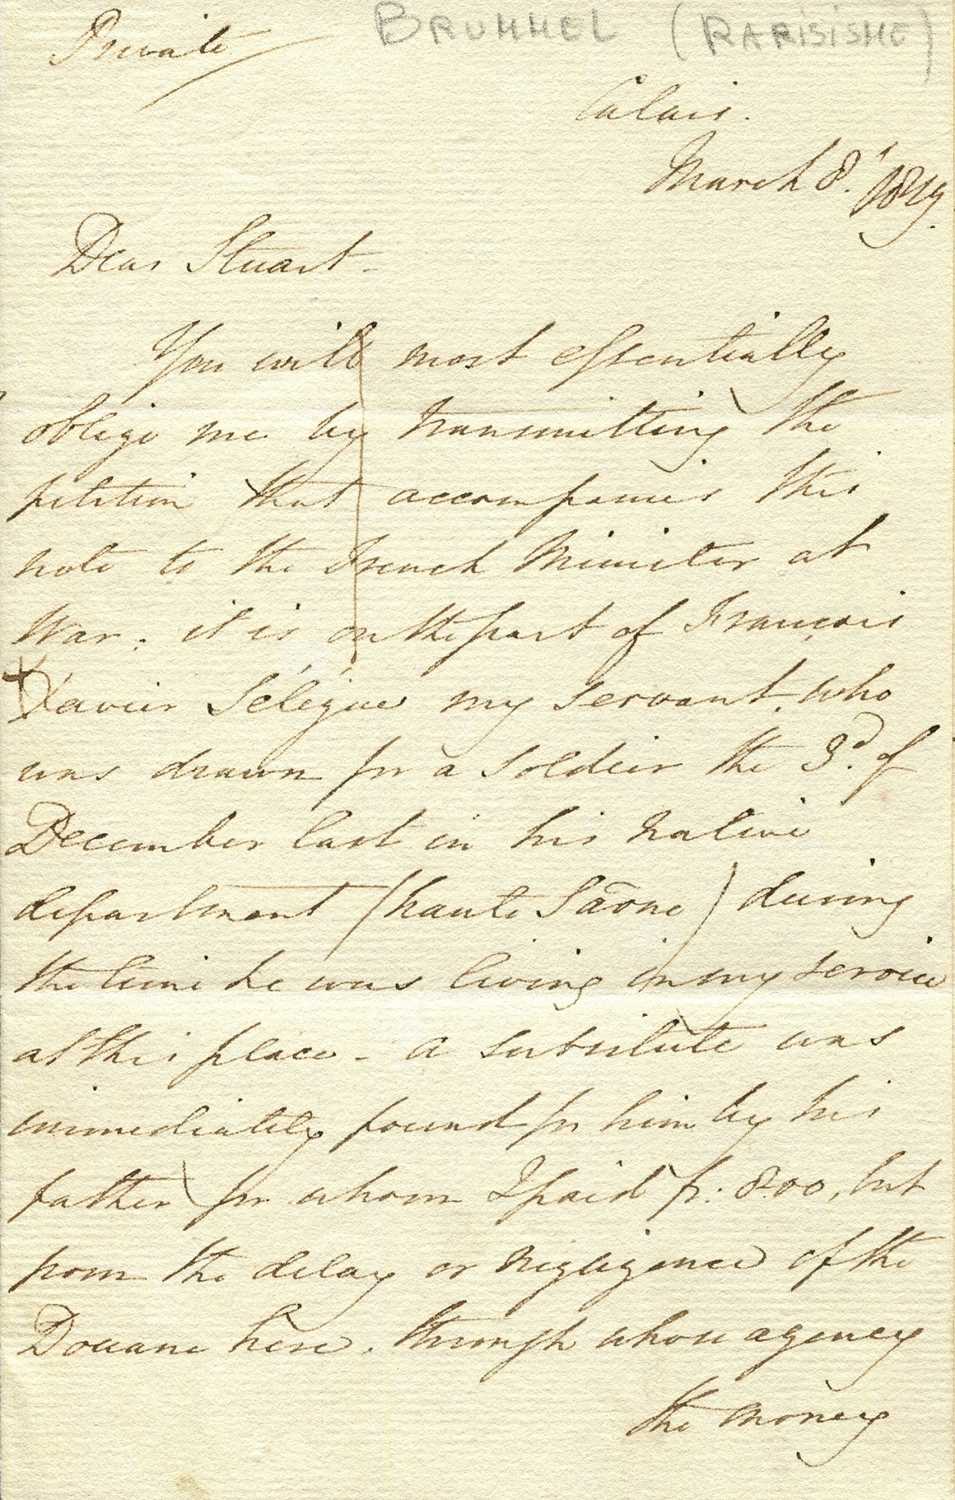 Private
BRUMMEL (RARISISME)
Calais.
March 8. 1819.
Dear Stuart.
You will most essentially
oblige me by transmitting the
petition that accompanies this
note to the French Minister at
War. it is on the part of François
Xavier Sélégue my servant, who
was drawn for a soldier the 3d. of
December last in his native
department (haute Sâone) during
the time he was living in my service
at this place - a subsitute was
immediately found for him by his
father for whom I paid fr: 800, but
from the delay or negligence of the
Douane here, through whose agency
the money